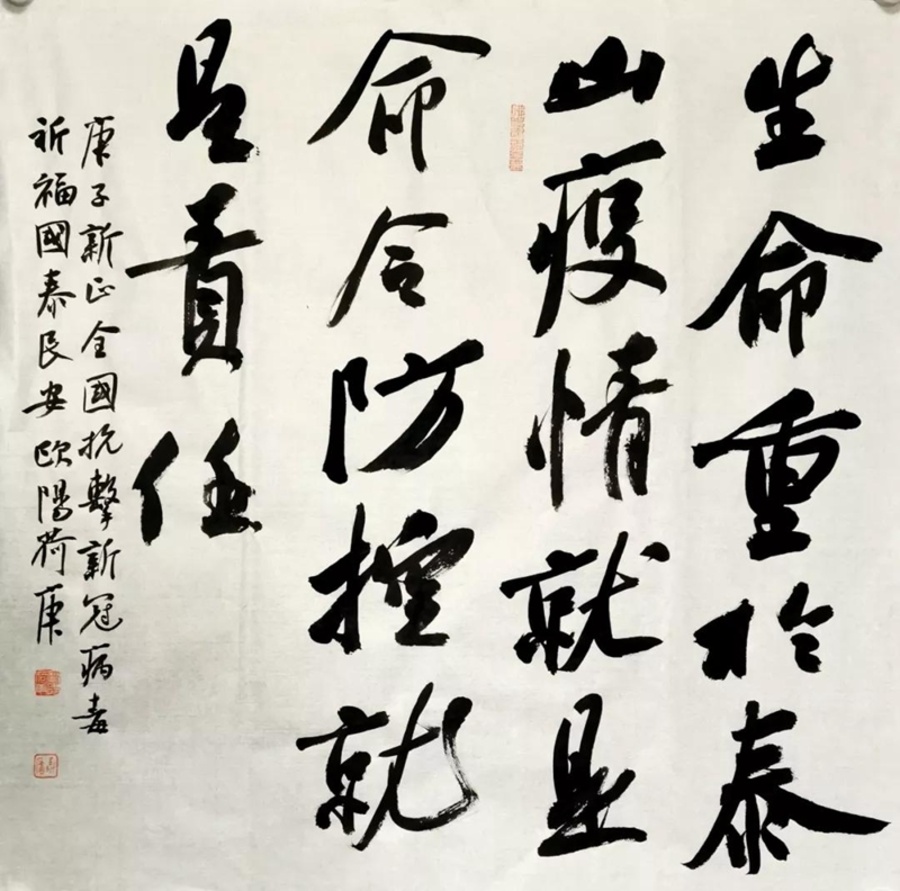 生命重於泰
山疫情就是
命令防控就
是責任
庚子新正全國抗擊新冠病毒
祈福國泰民安歐陽荷庚